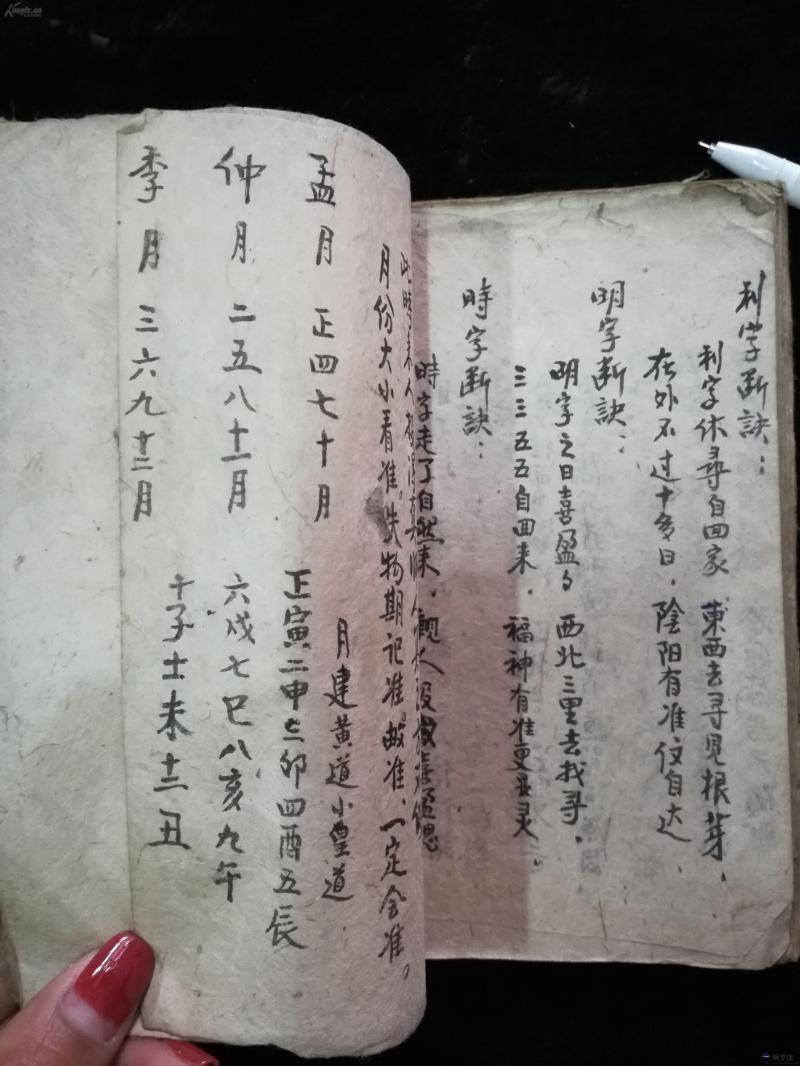 利字断訣：
利字休尋自回家 東西去寻见根芽、
在外不过十多日，陰阳有准仅自达、
明字断訣：
明字之日喜盈々 西北三里去找寻、
三三五五自回来，福神有准更显灵、
時字断訣：
時字走了自然来，
此時来人
月份大小看准。失物期记准。做准、一定会准。
孟月 正四七十月
月建黄道小皇道
正寅二申三卯四酉五辰
仲月 二五八十一月
六戌七巳八亥九午
季月 三六九十二月
十子十一未十二丑
Kongfz.cn